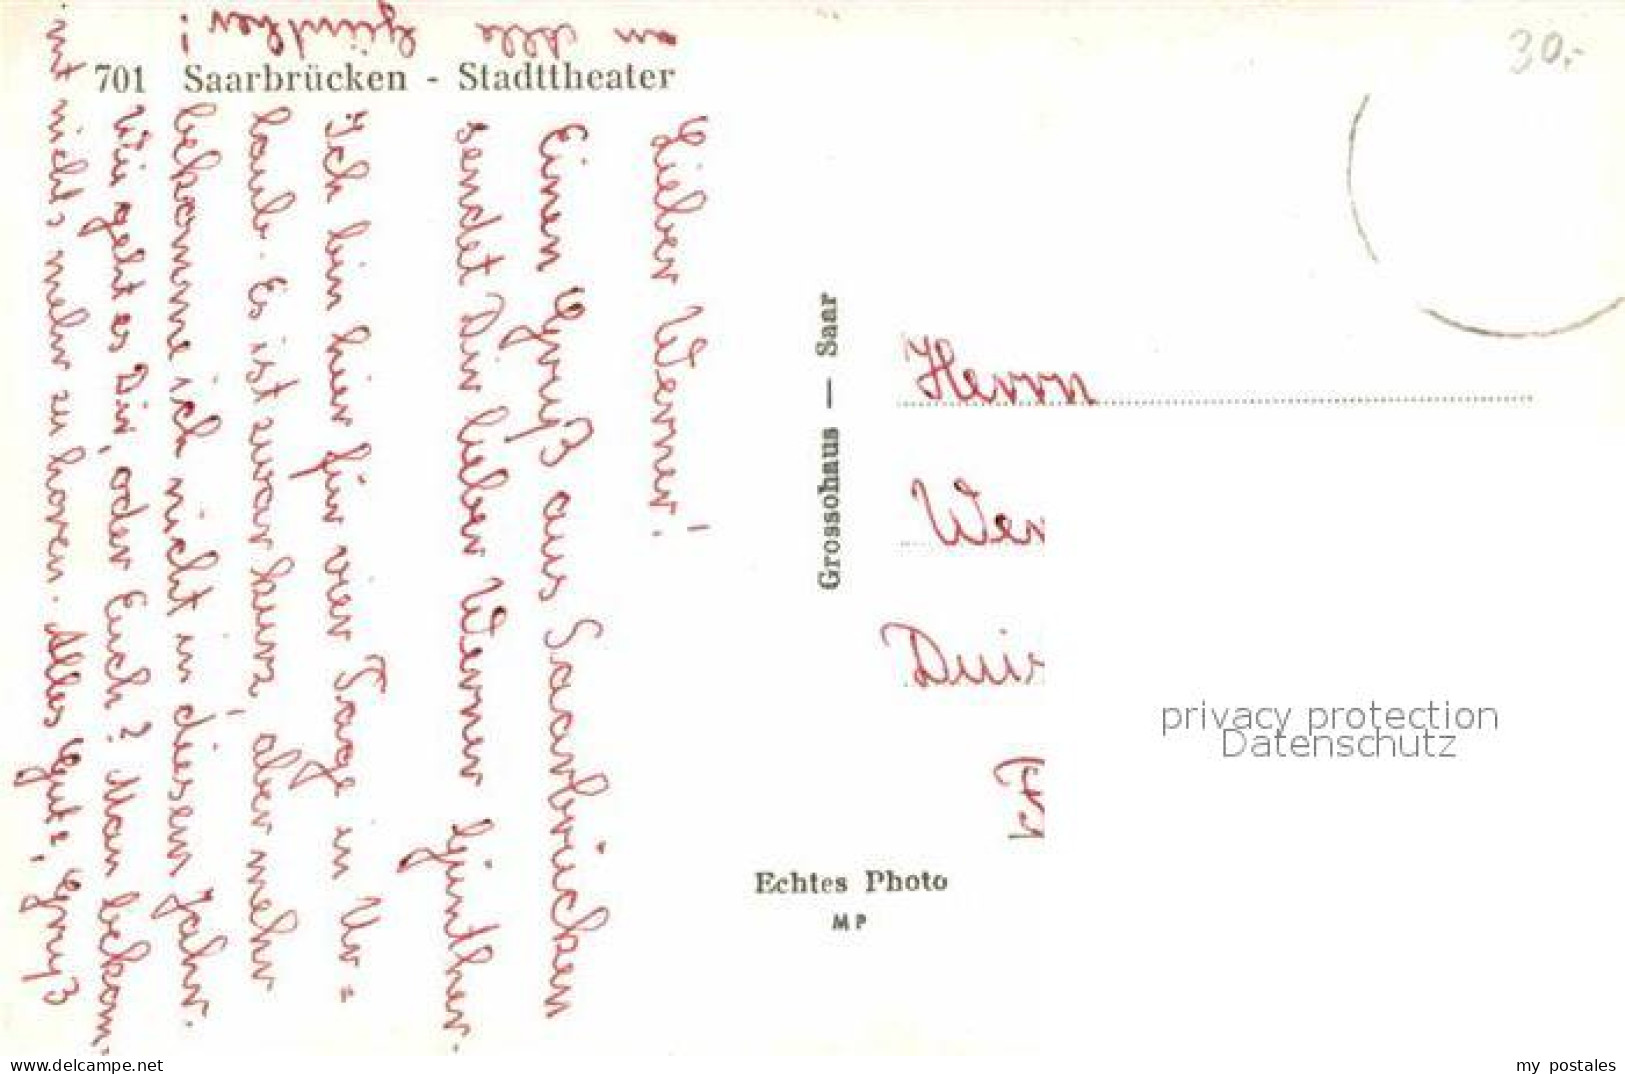 30.-
701 Saarbrücken - Stadttheater
Lieber Werner!
Einen Gruß aus Saarbrücken
sendet Dir lieber Werner Günther.
Ich bin hier für vier Tage in Ur=
laub. Es ist zwar kurz, aber mehr
bekomme ich nicht in diesem Jahr.
Wie geht es Dir, oder Euch? Man bekom
mt nichts mehr zu hören. Alles Gute, Gruß
an Alle Günther!
Grossohaus — Saar
Herrn
Wer
Duis
Echtes Photo
MP
privacy protection
Datenschutz
www.delcampe.net
my_postales